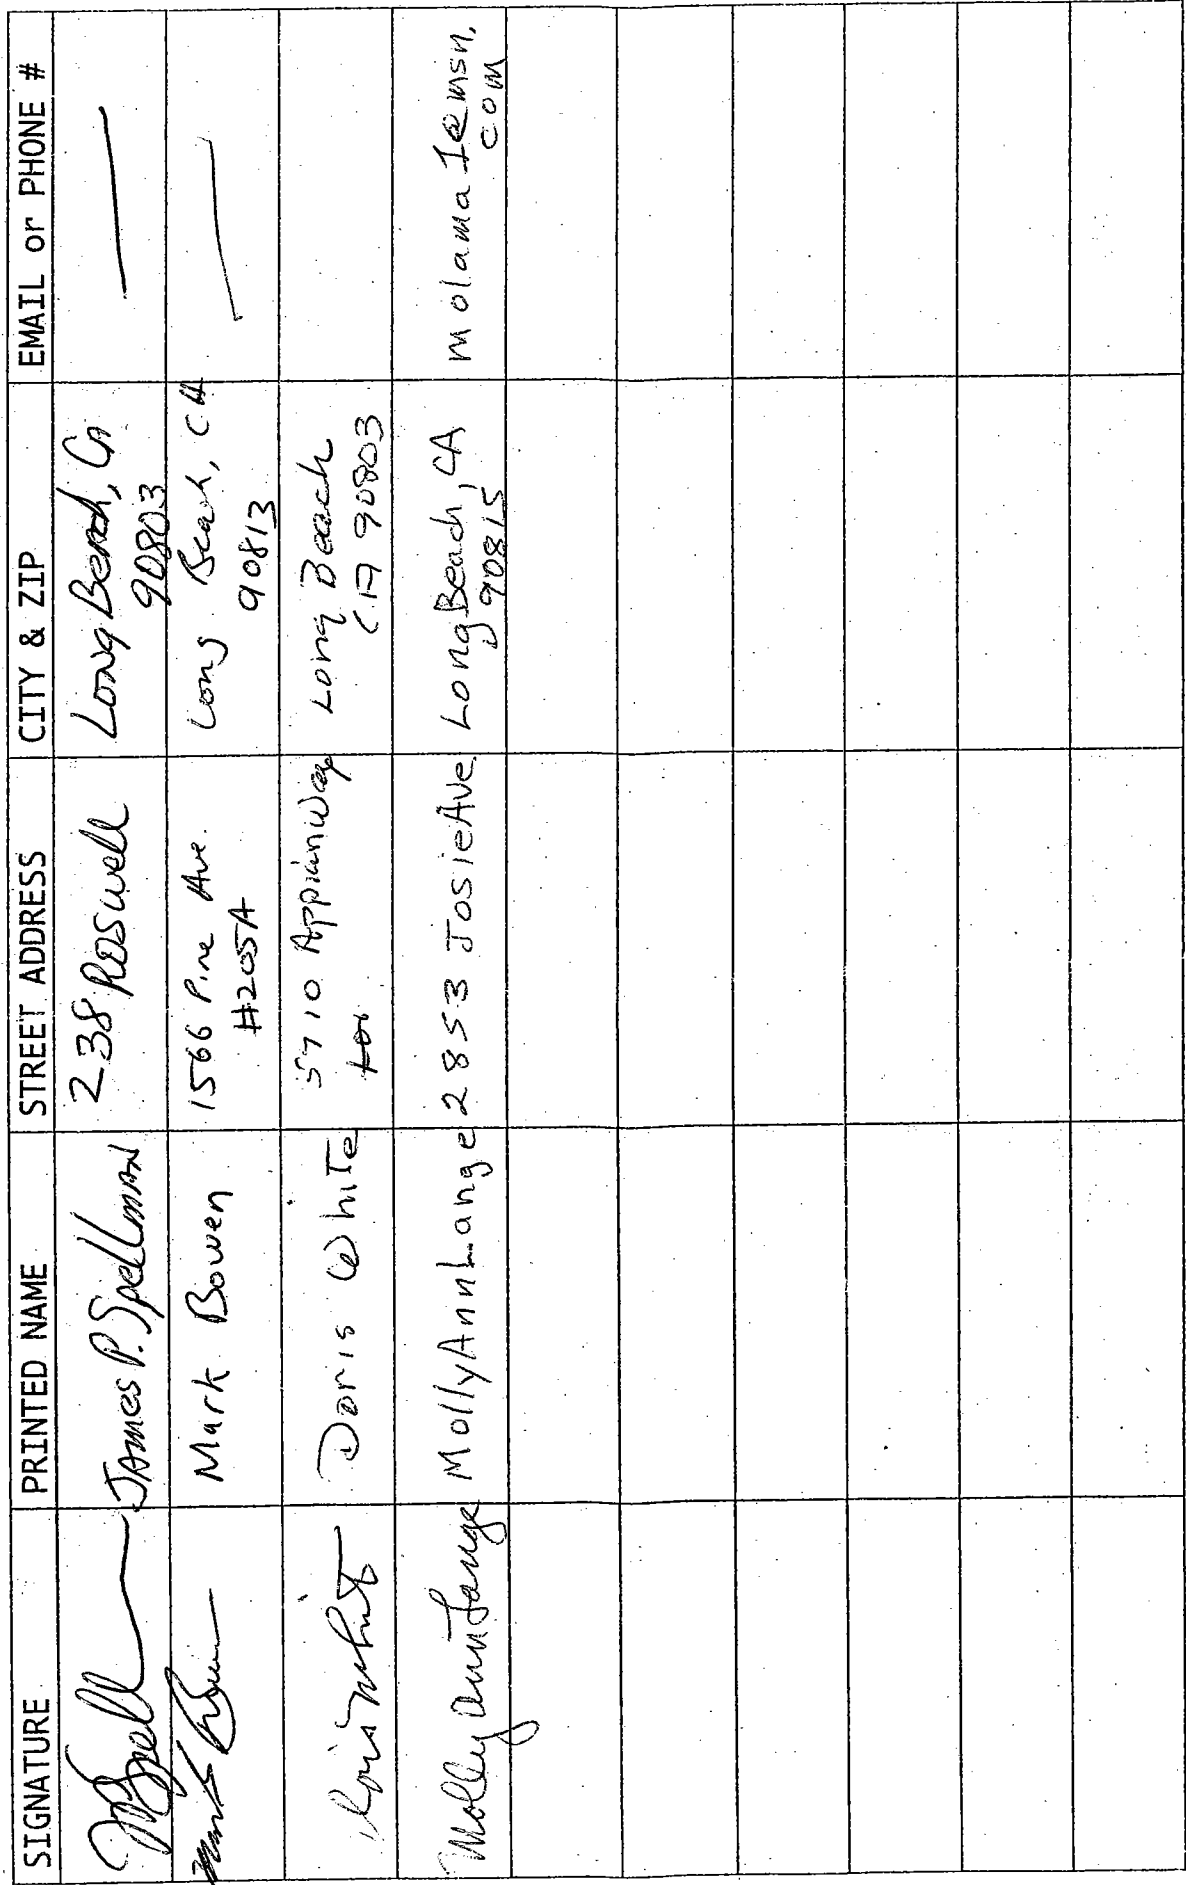 SIGNATURE PRINTED NAME STREET ADDRESS CITY & ZIP EMAIL or PHONE #
James P. Spellman 238 Roswell Long Beach, CA
90803
Mark Bowen 1566 Pine Ave. Long Beach, CA
#205A 90813
Doris White Doris White 5710 Appian Way Long Beach
CA 90803
Molly Ann Lange Molly Ann Lange 2853 Josie Ave Long Beach, CA molama1@msn.
90815 com